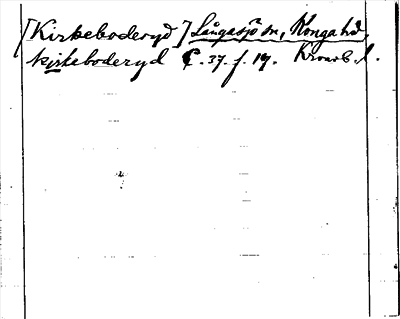 [Kirkeboderyd] Långasjö sn, Konga hd,
kirkeboderyd C. 37. f. 19. Kronob. l.